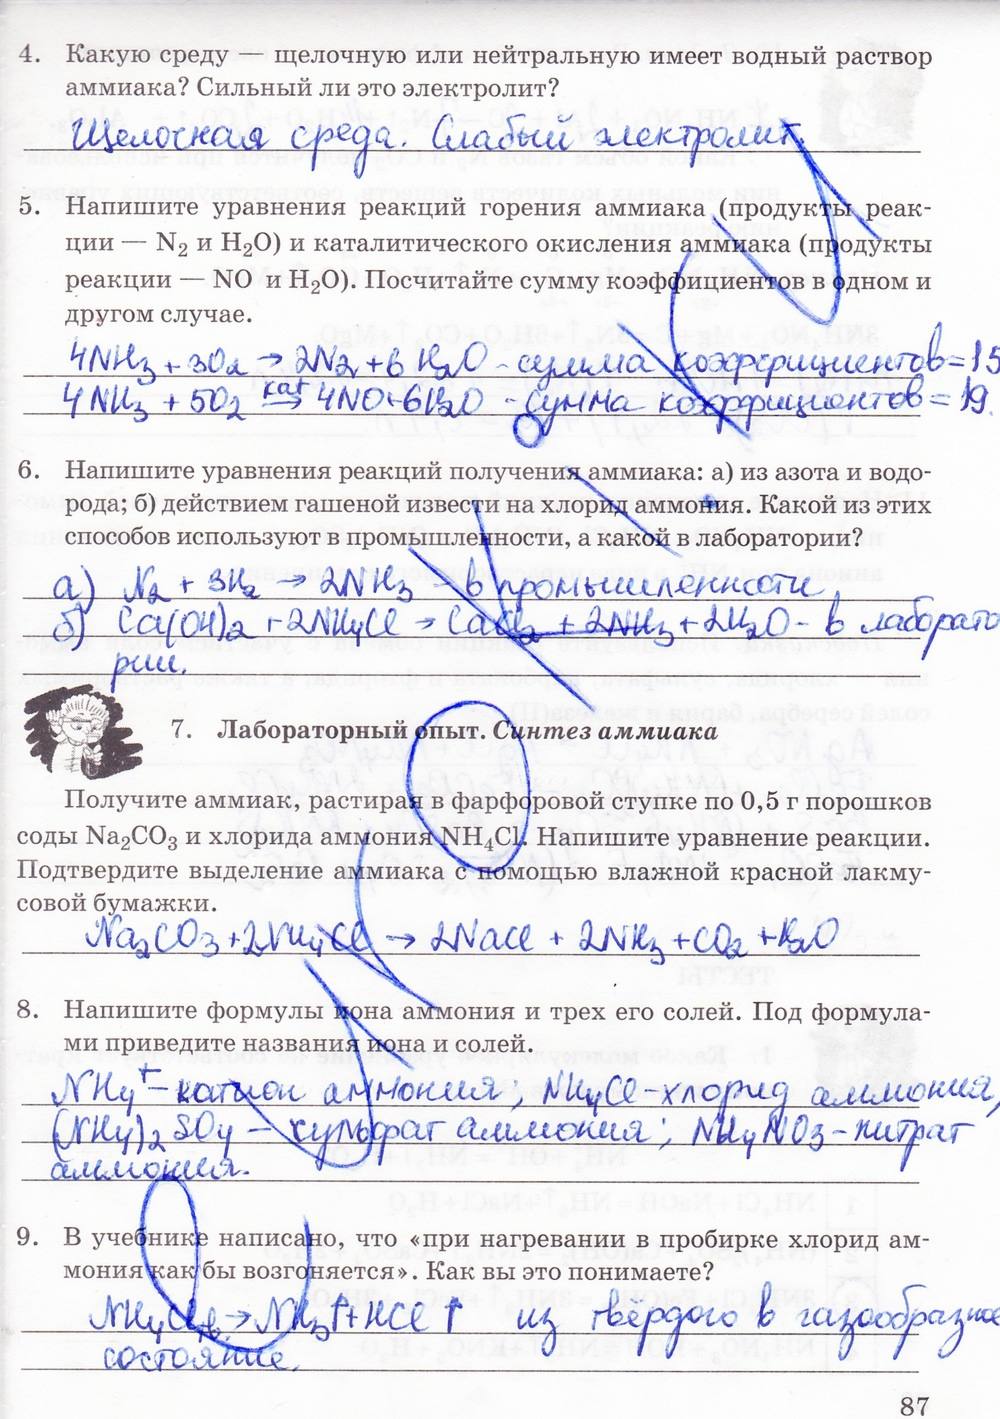 4. Какую среду — щелочную или нейтральную имеет водный раствор
аммиака? Сильный ли это электролит?
Щелочная среда. Слабый электролит.
5. Напишите уравнения реакций горения аммиака (продукты реак-
ции — N₂ и H₂O) и каталитического окисления аммиака (продукты
реакции — NO и H₂O). Посчитайте сумму коэффициентов в одном и
другом случае.
4NH₃ + 3O₂ → 2N₂ + 6H₂O - сумма коэффициентов = 15
4NH₃ + 5O₂ кат→ 4NO+6H₂O - сумма коэффициентов = 19.
6. Напишите уравнения реакций получения аммиака: а) из азота и водо-
рода; б) действием гашеной извести на хлорид аммония. Какой из этих
способов используют в промышленности, а какой в лаборатории?
а) N₂ + 3H₂ → 2NH₃ - в промышленности
б) Ca(OH)₂ + 2NH₄Cl → CaCl₂ + 2NH₃ + 2H₂O - в лаборато
рии.
7. Лабораторный опыт. Синтез аммиака
Получите аммиак, растирая в фарфоровой ступке по 0,5 г порошков
соды Na₂CO₃ и хлорида аммония NH₄Cl. Напишите уравнение реакции.
Подтвердите выделение аммиака с помощью влажной красной лакму-
совой бумажки.
Na₂CO₃ + 2NH₄Cl → 2NaCl + 2NH₃ + CO₂ + H₂O
8. Напишите формулы иона аммония и трех его солей. Под формула-
ми приведите названия иона и солей.
NH₄⁺ - катион аммония; NH₄Cl - хлорид аммония,
(NH₄)₂SO₄ - сульфат аммония; NH₄NO₃ - нитрат
аммония.
9. В учебнике написано, что «при нагревании в пробирке хлорид ам-
мония как бы возгоняется». Как вы это понимаете?
NH₄Cl → NH₃↑ + HCl↑ из твёрдого в газообразное
состояние.
87